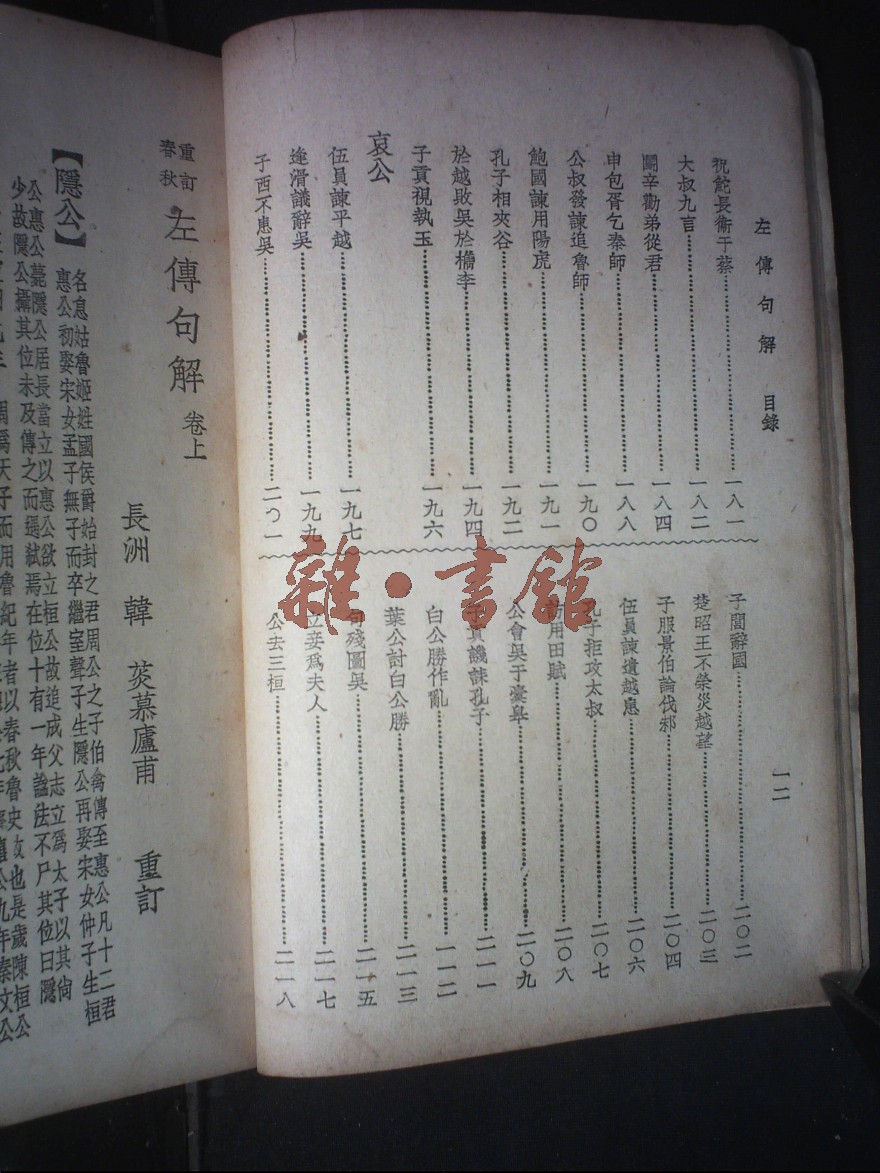 左傳句解 目錄
一二
祝鮀長衞于蔡 一八一
大叔九言 一八二
鬭辛勸弟從君 一八四
申包胥乞秦師 一八八
公叔發諫追魯師 一九〇
鮑國諫用陽虎 一九一
孔子相夾谷 一九二
於越敗吳於檇李 一九四
子貢視執玉 一九六
哀公
伍員諫平越 一九七
逢滑議辭吳 一九九
子西不患吳 二〇一
子閭辭國 二〇二
楚昭王不禜災越望 二〇三
子服景伯論伐邾 二〇四
伍員諫遺越患 二〇六
孔子拒攻太叔 二〇七
用田賦 二〇八
公會吳于橐皋 二〇九
子貢譏誄孔子 二一一
白公勝作亂 一一二
葉公討白公勝 二一三
句殘圖吳 二一五
立妾爲夫人 二一七
公去三桓 二一八
雜·書館
重訂春秋 左傳句解 卷上
長洲 韓 菼慕廬甫 重訂
【隱公】
名息姑魯姬姓國侯爵始封之君周公之子伯禽傳至惠公凡十二君
惠公初娶宋女孟子無子而卒繼室聲子生隱公再娶宋女仲子生桓
公惠公薨隱公居長當立以惠公欲立桓公故追成父志立爲太子以其尙
少故隱公攝其位未及傳之而遇弒焉在位十有一年謚法不尸其位曰隱
周爲天子而用魯紀年者以春秋魯史故也是歲陳桓公